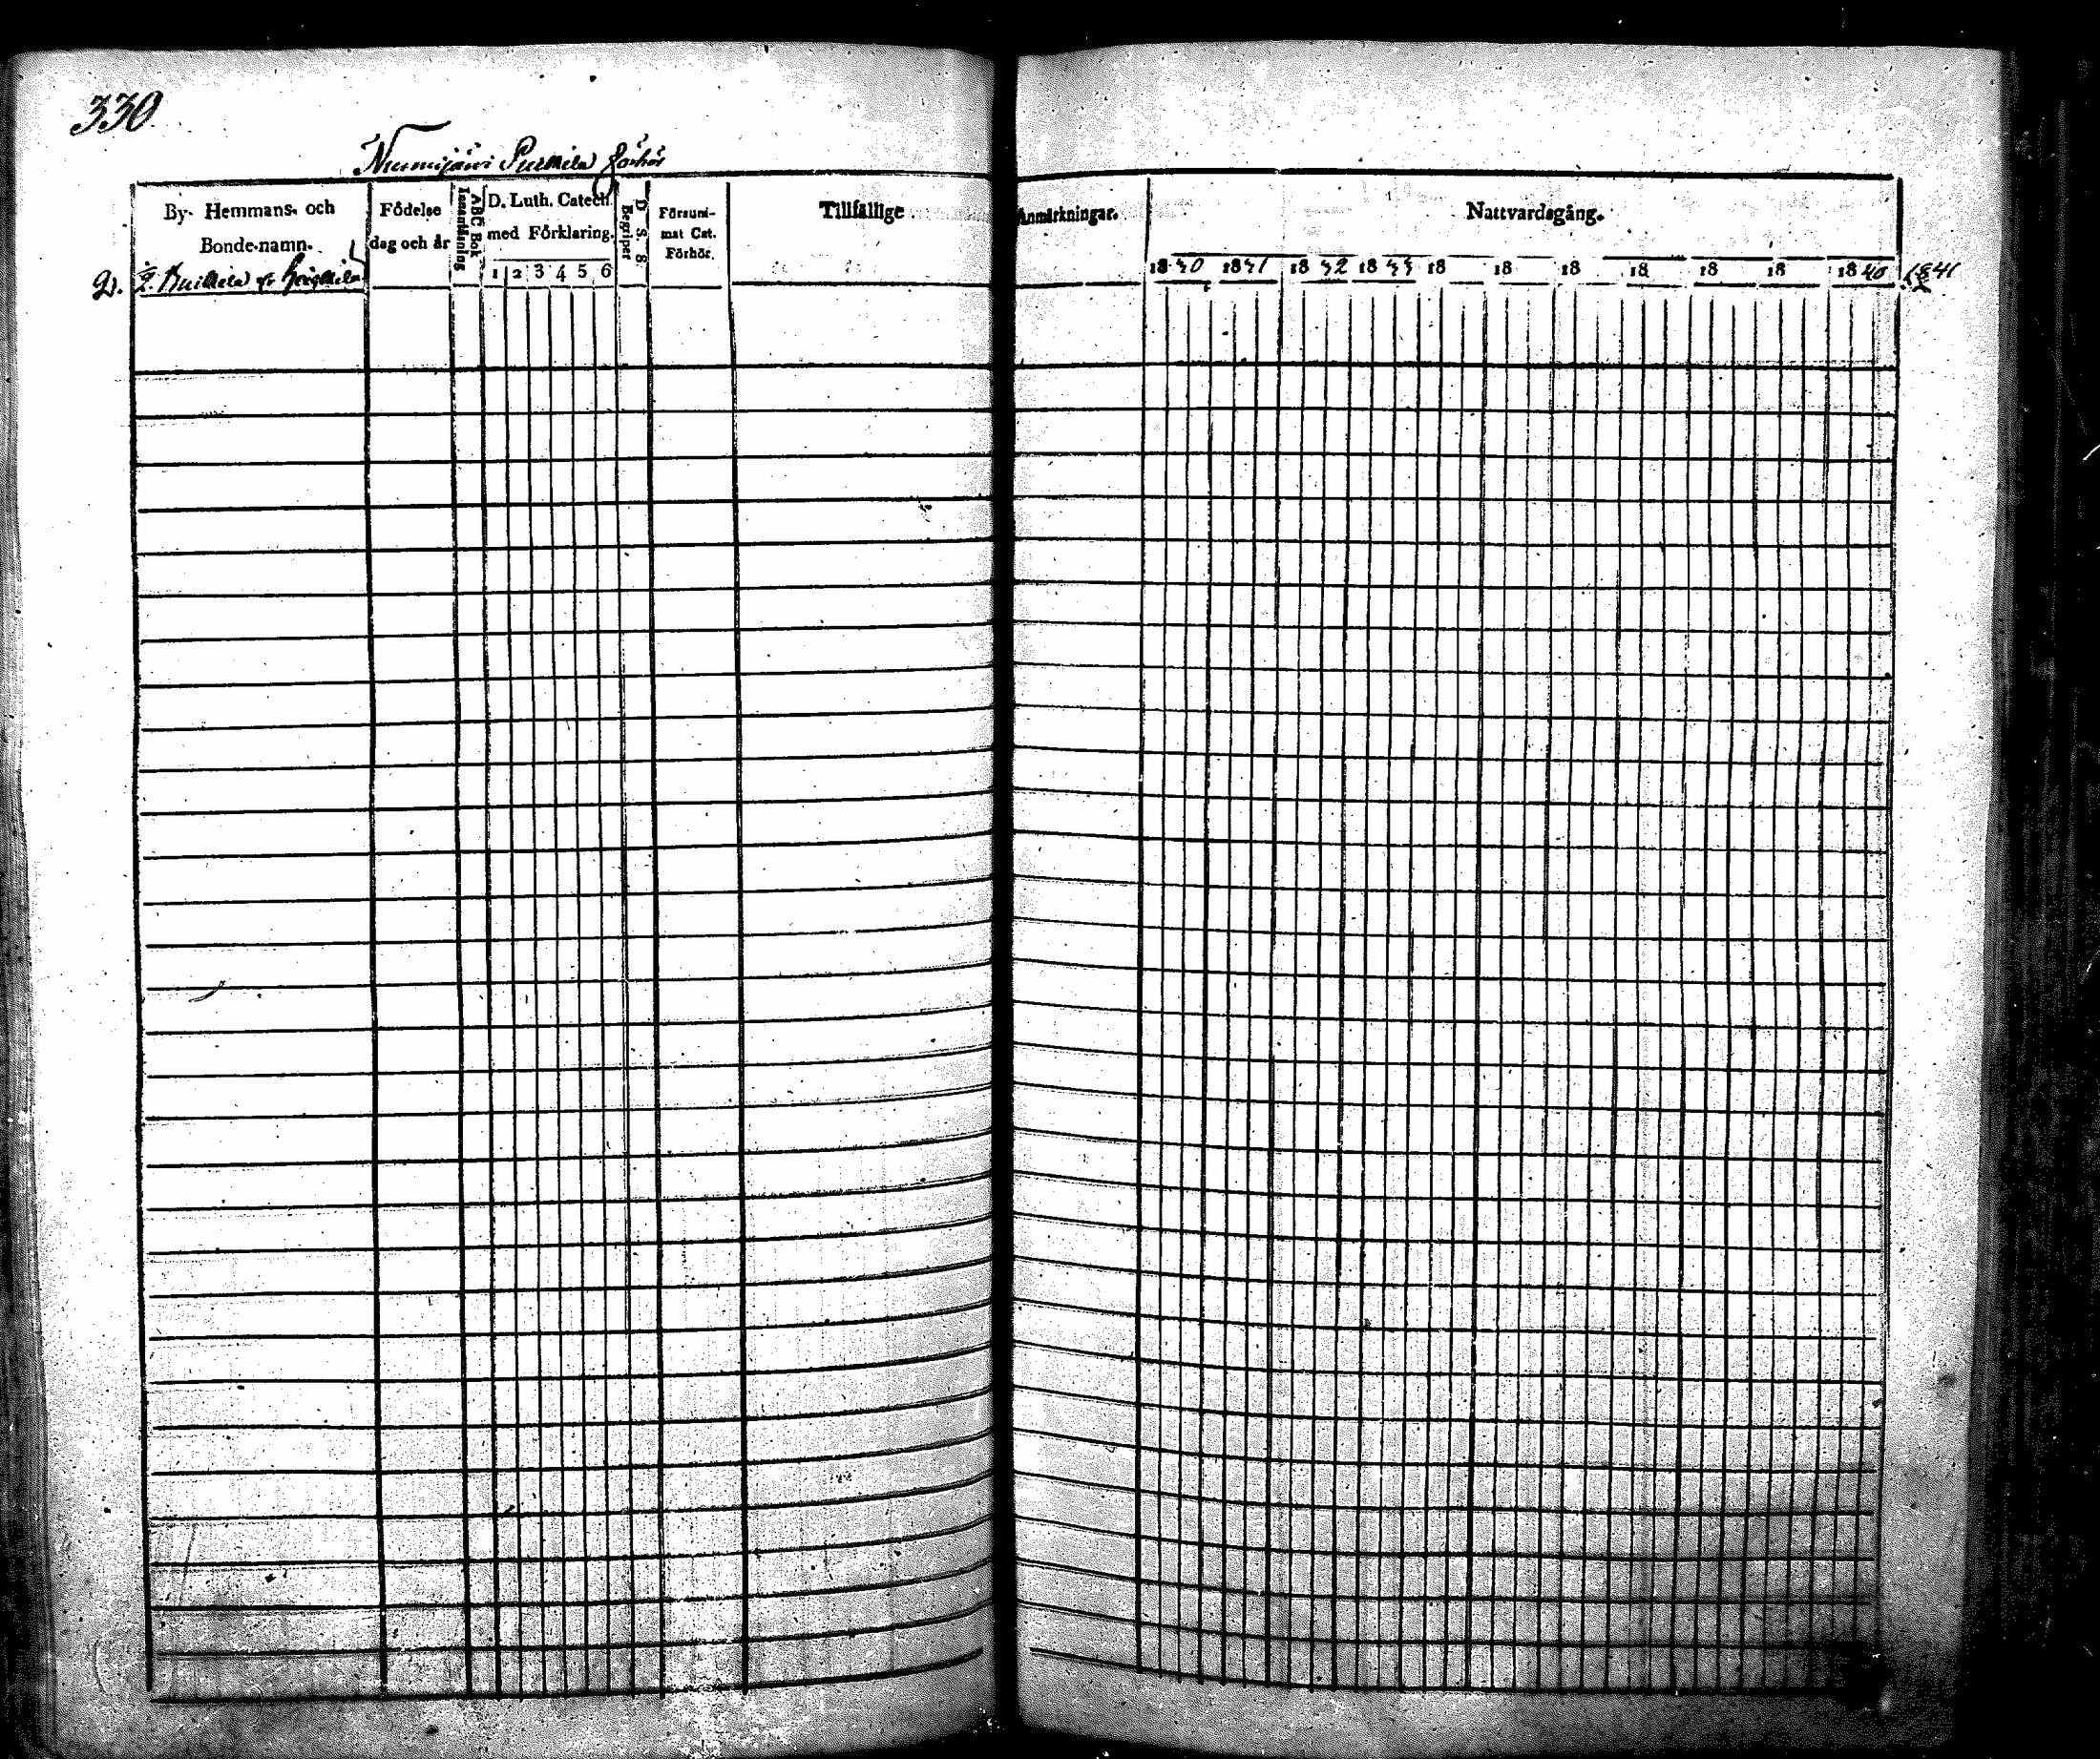 330
Nurmijärvi Purkila förhör
By- Hemmans- och Bonde-namn.
Födelse dag och år
ABC Bok Innanläsning
D. Luth. Catech. med Förklaring.
1 2 3 4 5 6
D. S. 8. Begriper
Försum- mat Cat. Förhör.
Tillfällige Anmärkningar.
Nattvardsgång.
1830 1831 1832 1833 18 18 18 18 18 18 1840 1841
2.